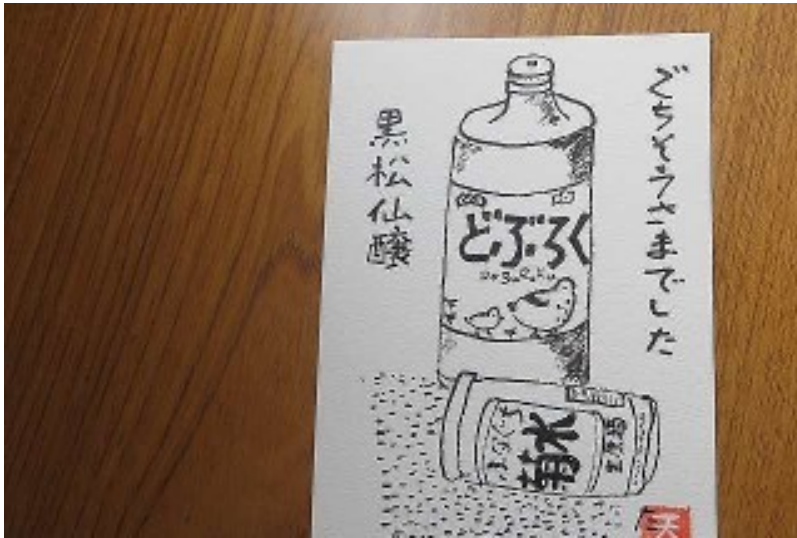 ごちそうさまでした
黒松仙醸
どぶろく
DoBuRoKu
ふなぐち
菊水
生原酒
天